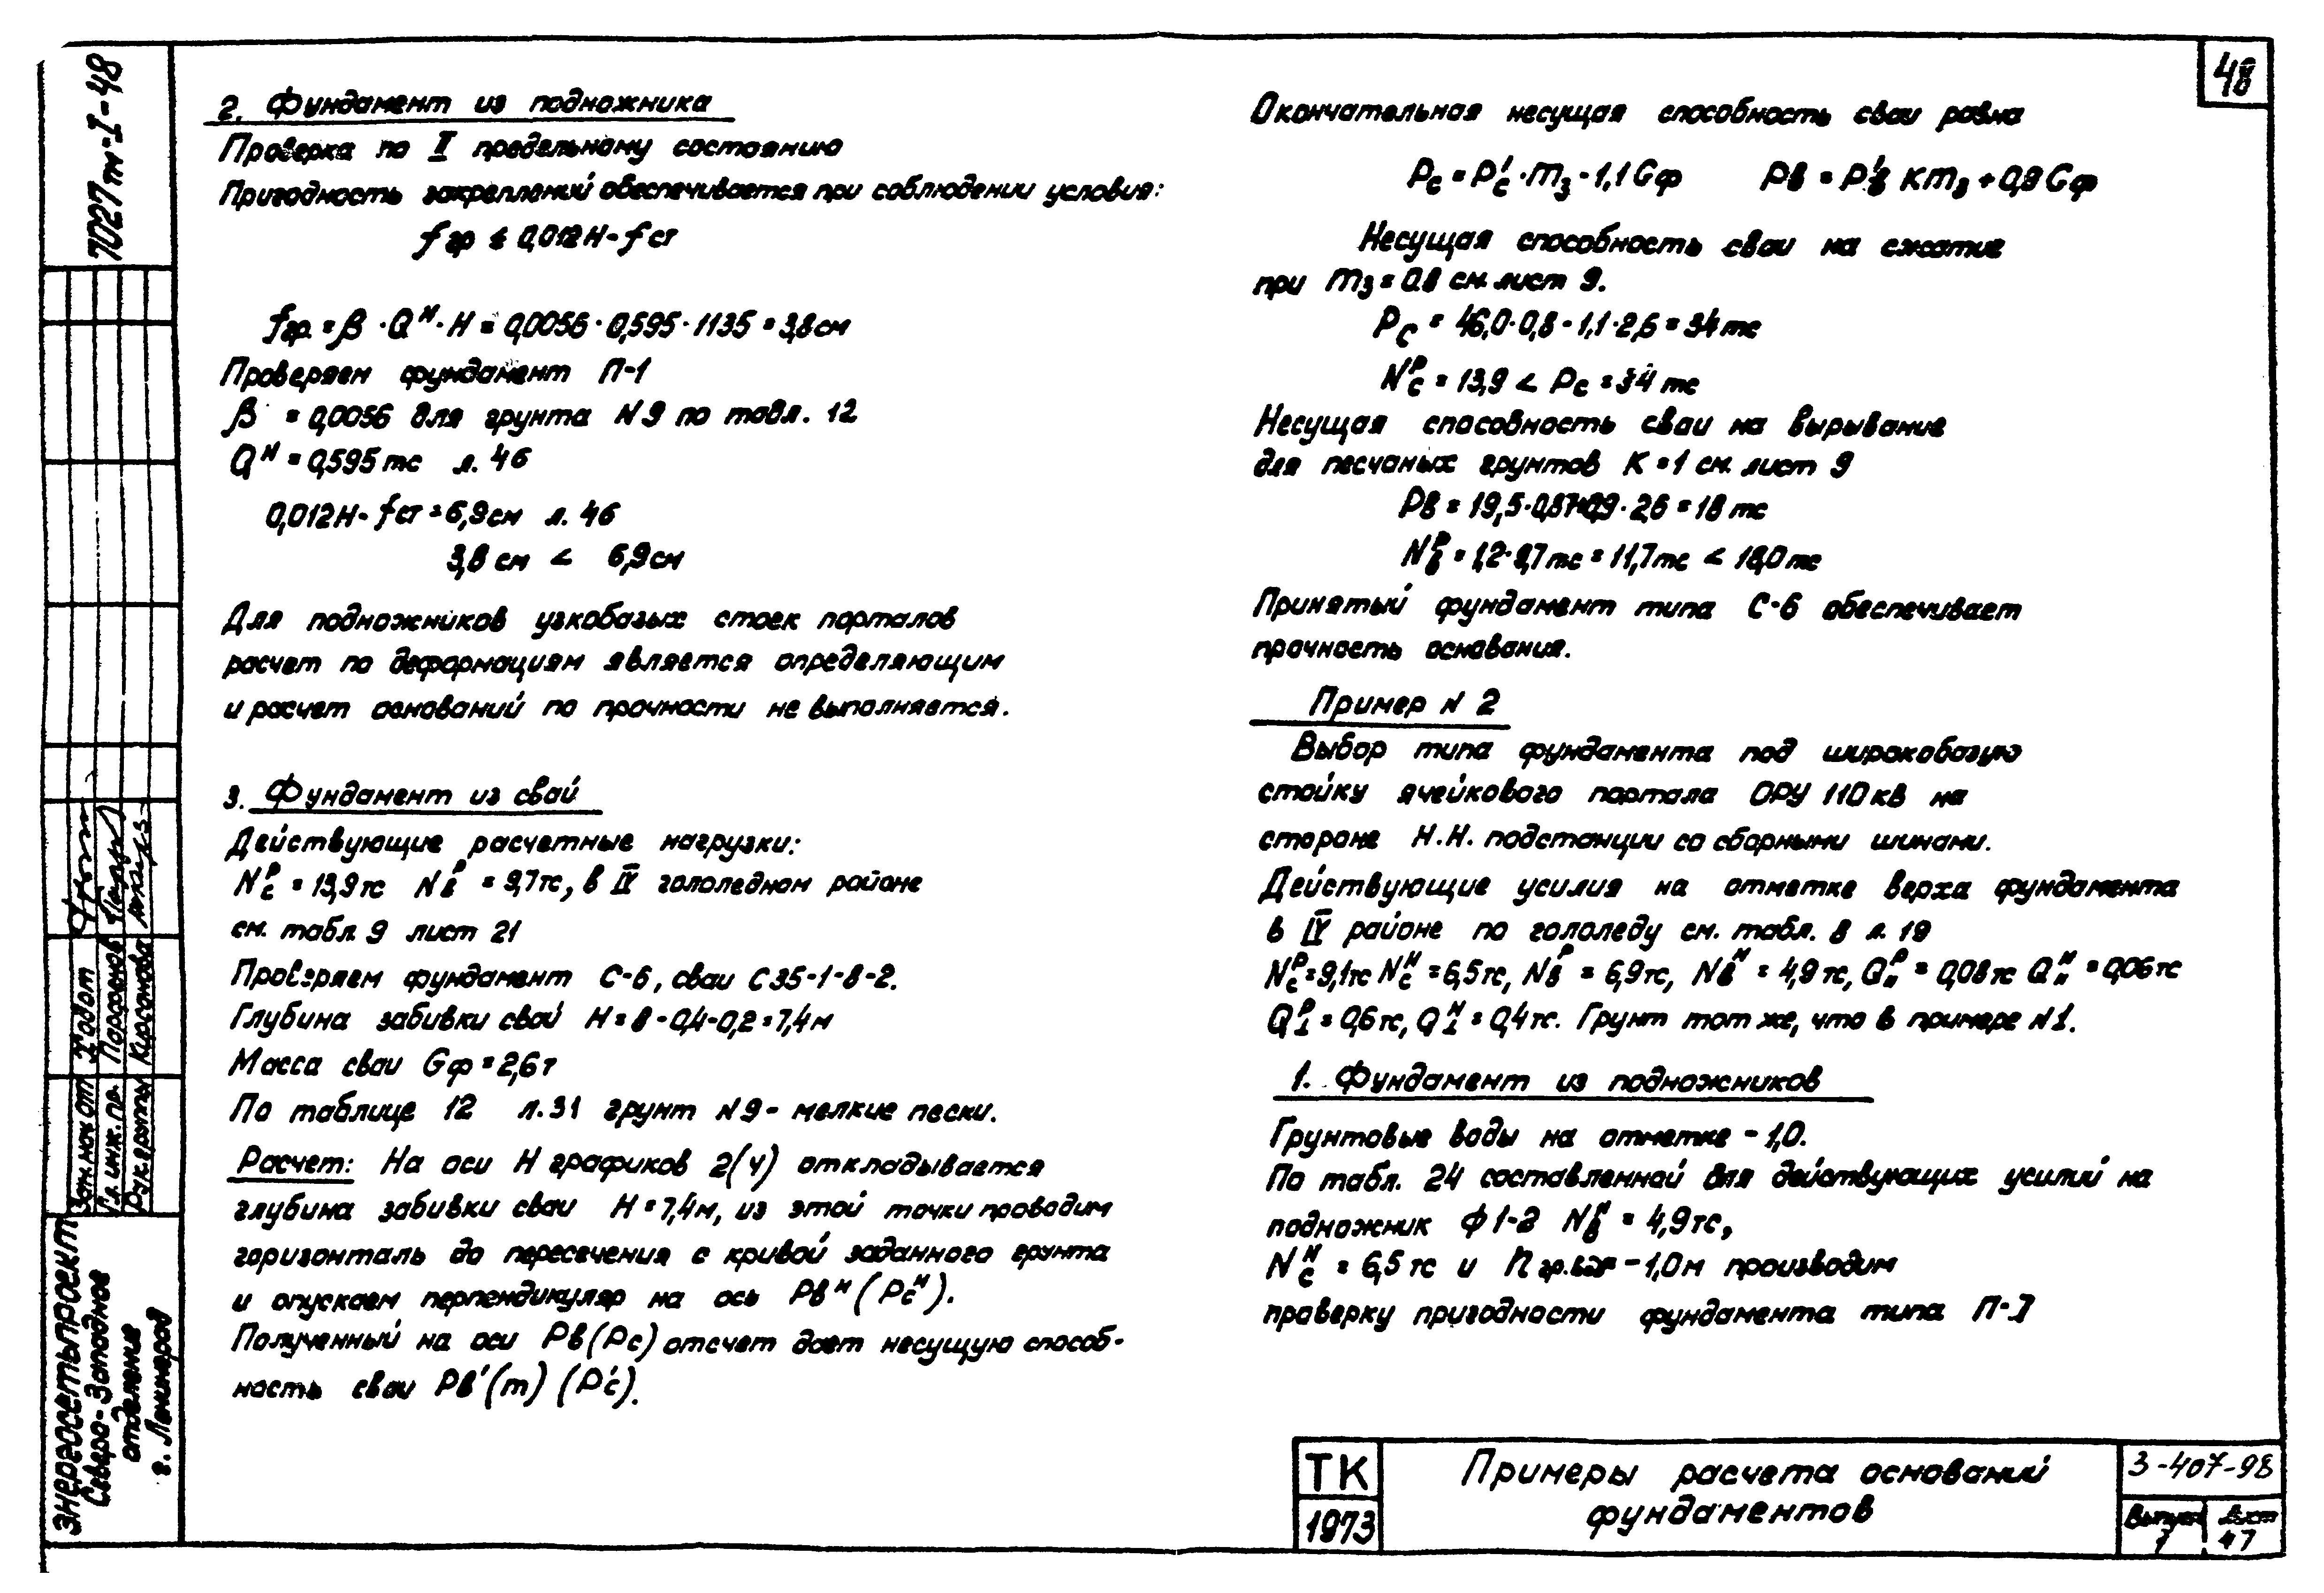 48
2. Фундамент из подножника
Проверка по II предельному состоянию
Пригодность закреплений обеспечивается при соблюдении условия:
fгр ≤ 0,012H-fст
fгр. = β · Qᴴ · H = 0,0056 · 0,595 · 1135 = 3,8см
Проверяем фундамент П-1
β = 0,0056 для грунта N9 по табл. 12
Qᴴ = 0,595тс л. 46
0,012H-fст = 6,9см л. 46
3,8 см < 6,9см
Для подножников узкобазых стоек порталов
расчет по деформациям является определяющим
и расчет оснований по прочности не выполняется.
3. Фундамент из свай
Действующие расчетные нагрузки:
Nсᴾ = 13,9тс Nвᴾ = 9,7тс, в IV гололедном районе
см. табл. 9 лист 21
Проверяем фундамент С-6, сваи С35-1-8-2.
Глубина забивки свай H = 8-0,4-0,2 = 7,4м
Масса сваи Gф = 2,6т
По таблице 12 л. 31 грунт N9 - мелкие пески.
Расчет: На оси H графиков 2(ч) откладывается
глубина забивки сваи H = 7,4м, из этой точки проводим
горизонталь до пересечения с кривой заданного грунта
и опускаем перпендикуляр на ось Pвᴴ (Pсᴴ).
Полученный на оси Pв(Pс) отсчет дает несущую способ-
ность сваи Pв'(т) (P'с).
Окончательная несущая способность сваи равна
Pс = P'с · m₃ - 1,1Gф Pв = P'в Km₃ + 0,9Gф
Несущая способность сваи на сжатие
при m₃ = 0.8 см. лист 9.
Pс = 46,0·0,8 - 1,1·2,6 = 34тс
Nсᴾ = 13,9 < Pс = 34тс
Несущая способность сваи на вырывание
для песчаных грунтов K = 1 см. лист 9
Pв = 19,5·0,8+0,9·2,6 = 18тс
Nвᴾ = 1,2·9,7тс = 11,7тс < 18,0тс
Принятый фундамент типа С-6 обеспечивает
прочность основания.
Пример N 2
Выбор типа фундамента под широкобазую
стойку ячейкового портала ОРУ 110кв на
стороне Н.Н. подстанции со сборными шинами.
Действующие усилия на отметке верха фундамента
в IV районе по гололеду см. табл. 8 л. 19
Nсᴾ = 9,1тс Nсᴴ = 6,5тс, Nвᴾ = 6,9тс, Nвᴴ = 4,9тс, Q"ᴾ = 0,08тс Q"ᴴ = 0,06тс
Q⊥ᴾ = 0,6тс, Q⊥ᴴ = 0,4тс. Грунт тот же, что в примере N1.
1. Фундамент из подножников
Грунтовые воды на отметке - 1,0.
По табл. 24 составленной для действующих усилий на
подножник Ф1-2 Nвᴴ = 4,9тс,
Nсᴴ = 6,5тс и hгр.вод - 1,0м производим
проверку пригодности фундамента типа П-I
7027тм-I-48
Зам. нач. отд.
Гл. инж. пр. Парфенов
Рук. группы Кирсанова
Энергосетьпроект
Северо-Западное
отделение
г. Ленинград
ТК
1973
Примеры расчета оснований
фундаментов
3-407-98
Выпуск Лист
1 47